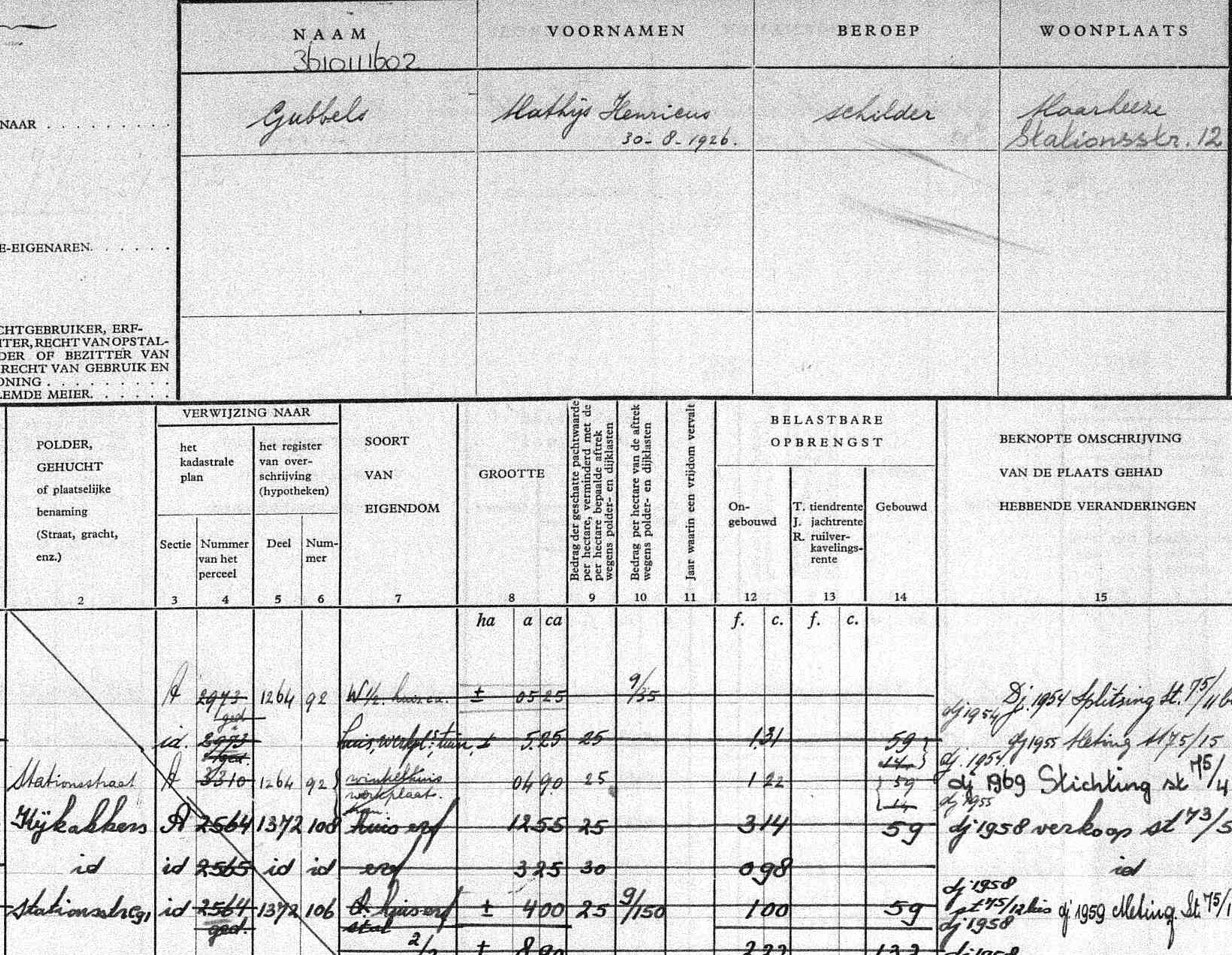 NAAM VOORNAMEN BEROEP WOONPLAATS
3610111602
NAAR Gubbels Mathijs Henricus schilder Maarheeze
30-8-1926. Stationsstr. 12
E-EIGENAREN.
CHTGEBRUIKER, ERF-
ITER, RECHT VAN OPSTAL-
DER OF BEZITTER VAN
RECHT VAN GEBRUIK EN
ONING
LEMDE MEIER.
POLDER,
GEHUCHT
of plaatselijke
benaming
(Straat, gracht,
enz.)
VERWIJZING NAAR
het
kadastrale
plan
het register
van over-
schrijving
(hypotheken)
Sectie
Nummer
van het
perceel
Deel
Num-
mer
SOORT
VAN
EIGENDOM
GROOTTE
Bedrag der geschatte pachtwaarde
per hectare, verminderd met de
per hectare bepaalde aftrek
wegens polder- en dijklasten
Bedrag per hectare van de aftrek
wegens polder- en dijklasten
Jaar waarin een vrijdom vervalt
BELASTBARE
OPBRENGST
On-
gebouwd
T. tiendrente
J. jachtrente
R. ruilver-
kavelings-
rente
Gebouwd
BEKNOPTE OMSCHRIJVING
VAN DE PLAATS GEHAD
HEBBENDE VERANDERINGEN
2 3 4 5 6 7 8 9 10 11 12 13 14 15
ha a ca f. c. f. c.
A 2973 1264 92 W ½ huis ± 05 25 9/35 dj 1954 Dj. 1954 Splitsing St. 75/
ged
id. 2973 huis, werkpl. tuin ± 5.25 25 131 59 dj 1955 Meting st 75/15
dj. 1954
Stationsstraat A 3310 1264 92 winkelhuis 04 90 25 122 59 dj 1969 Stichting st 75/4
werkplaats. 14 dj 1955
A 2564 1372 108 huis erf 12 55 25 314 59 dj 1958 verkoop st 73/5
id id 2565 id id erf 3 25 30 098 id
dj 1958
id 2564 1372 106 huis erf ± 4 00 25 9/150 100 59 75/12 bis dj 1959 Meting. St. 75/1
ged. stal dj 1958
± 8 90 dj 1958